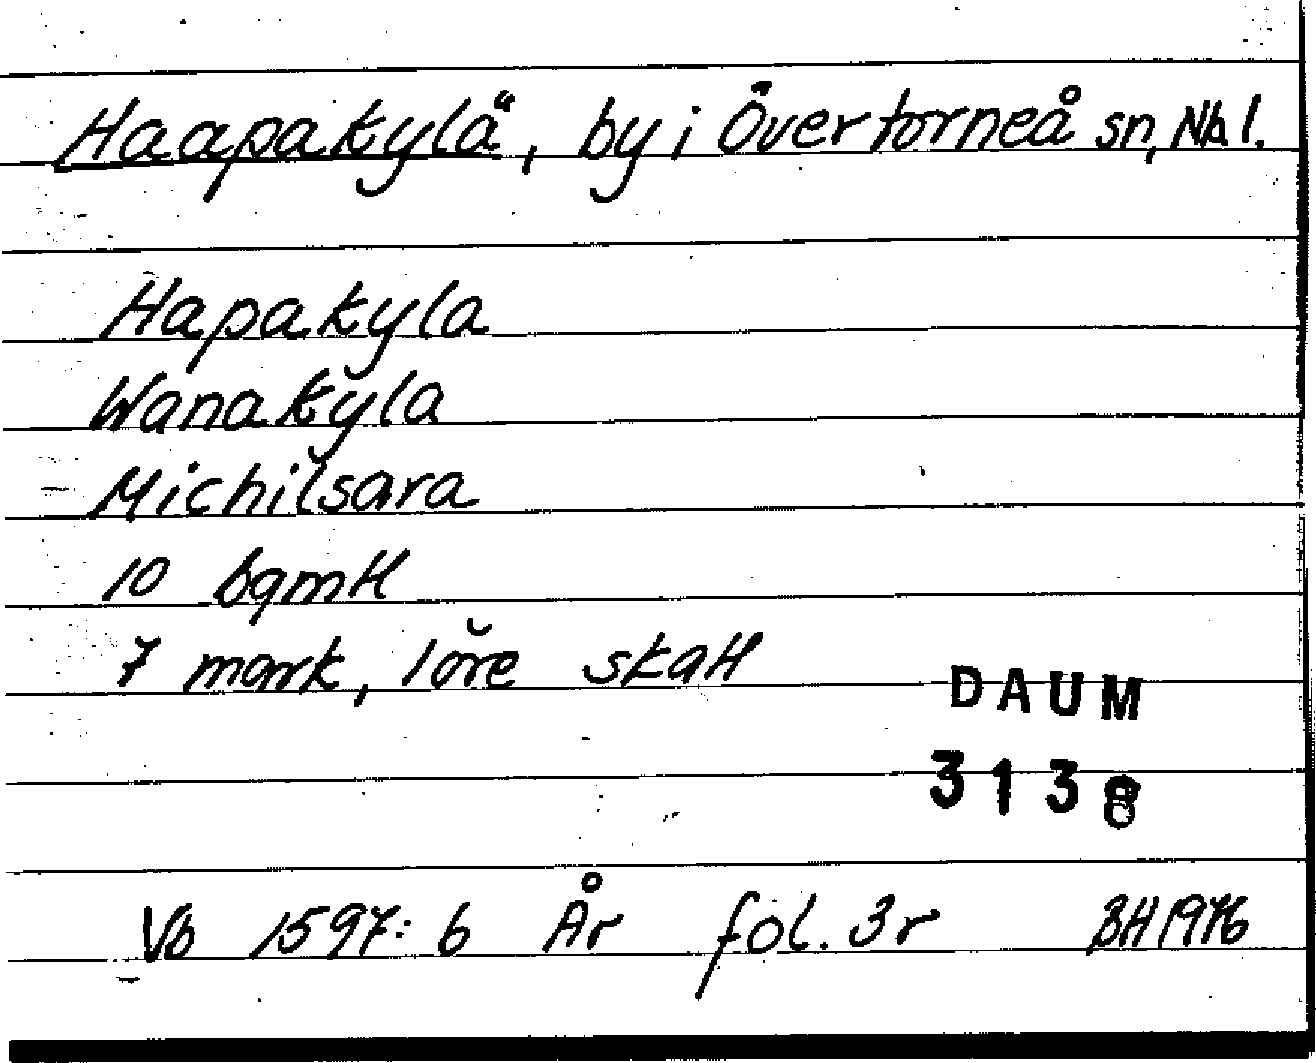 Haapakylä, by i Övertorneå sn, Nb l.
Hapakyla
Wanakyla
Michilsara
10 bgmH
7 mark, 1 öre skatt
DAUM
3138
Vb 1597:6 År fol. 3r BH 1976